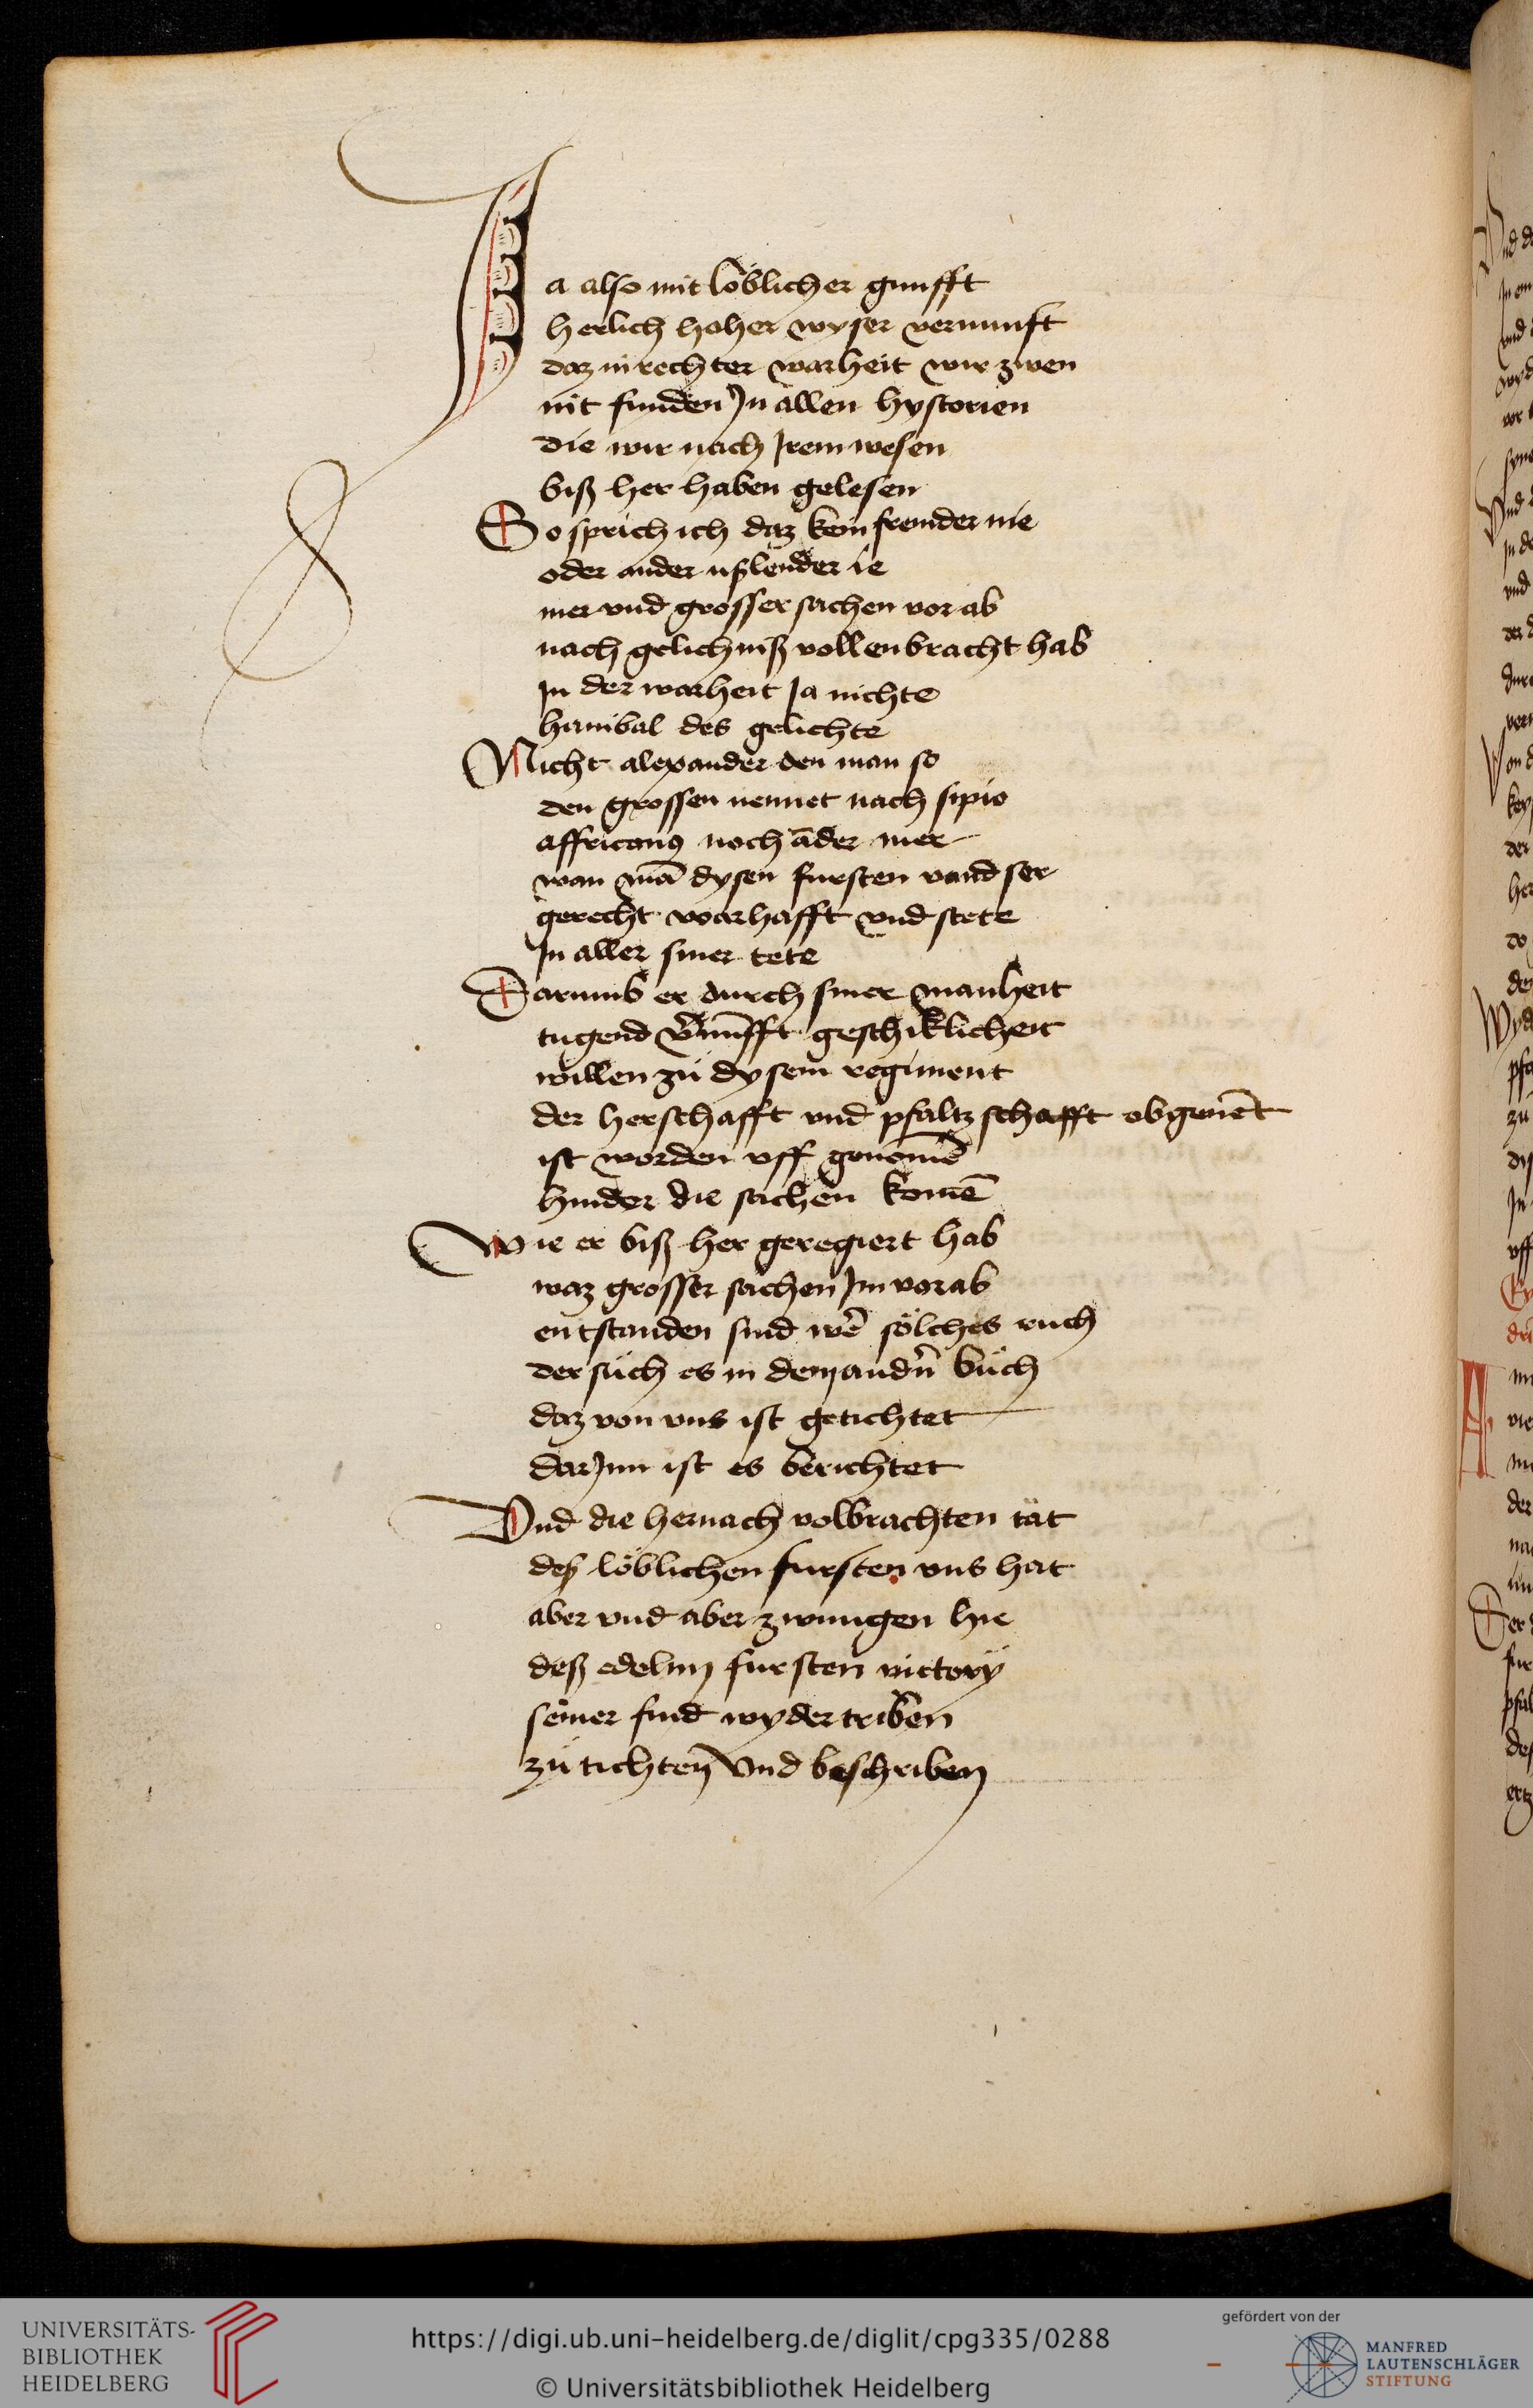 Ja also mit loblicher gunfft
herlich hoher wyser vernunft
daz in rechter warheit wir zwen
nit funden Jn allen hystorien
die wir nach Jrem wesen
biß her haben gelesen
So sprich ich daz kein fremder nie
oder ander ußlender ie
mer vnd grosser sachen vor ab
nach gelichniß vollenbracht hab
Jn der warheit Ja nichte
hanibal des gelichte
Nicht alexander den man so
den grossen nennet nach sipio
affricanꝯ noch āder mer
wan mā dysen fursten vand ser
gerecht warhafft vnd stete
Jn aller siner tete
Darumb er durch siner manheit
tugend v̄nūfft geschiklicheit
willen zü dysem regiment
der herschafft vnd pfaltzschafft obgenēt
ist worden vff genomē
hinder die sachen komē
Wie er biß her geregiert hab
waz grosser sachen Jm vorab
entstanden sind wē sölches ruch
der such es in dem andn̄ buch
daz von vns ist getichtet
darJnn ist es berichtet
Vnd die hernach volbrachten tät
deß löblichen fursten vns hat
aber vnd aber zwungen hie
deß edelnn fursten victory
seiner find wyder triben
zü tichten Vnd beschriben
UNIVERSITÄTS-
BIBLIOTHEK
HEIDELBERG
https://digi.ub.uni-heidelberg.de/diglit/cpg335/0288
© Universitätsbibliothek Heidelberg
gefördert von der
MANFRED
LAUTENSCHLÄGER
STIFTUNG